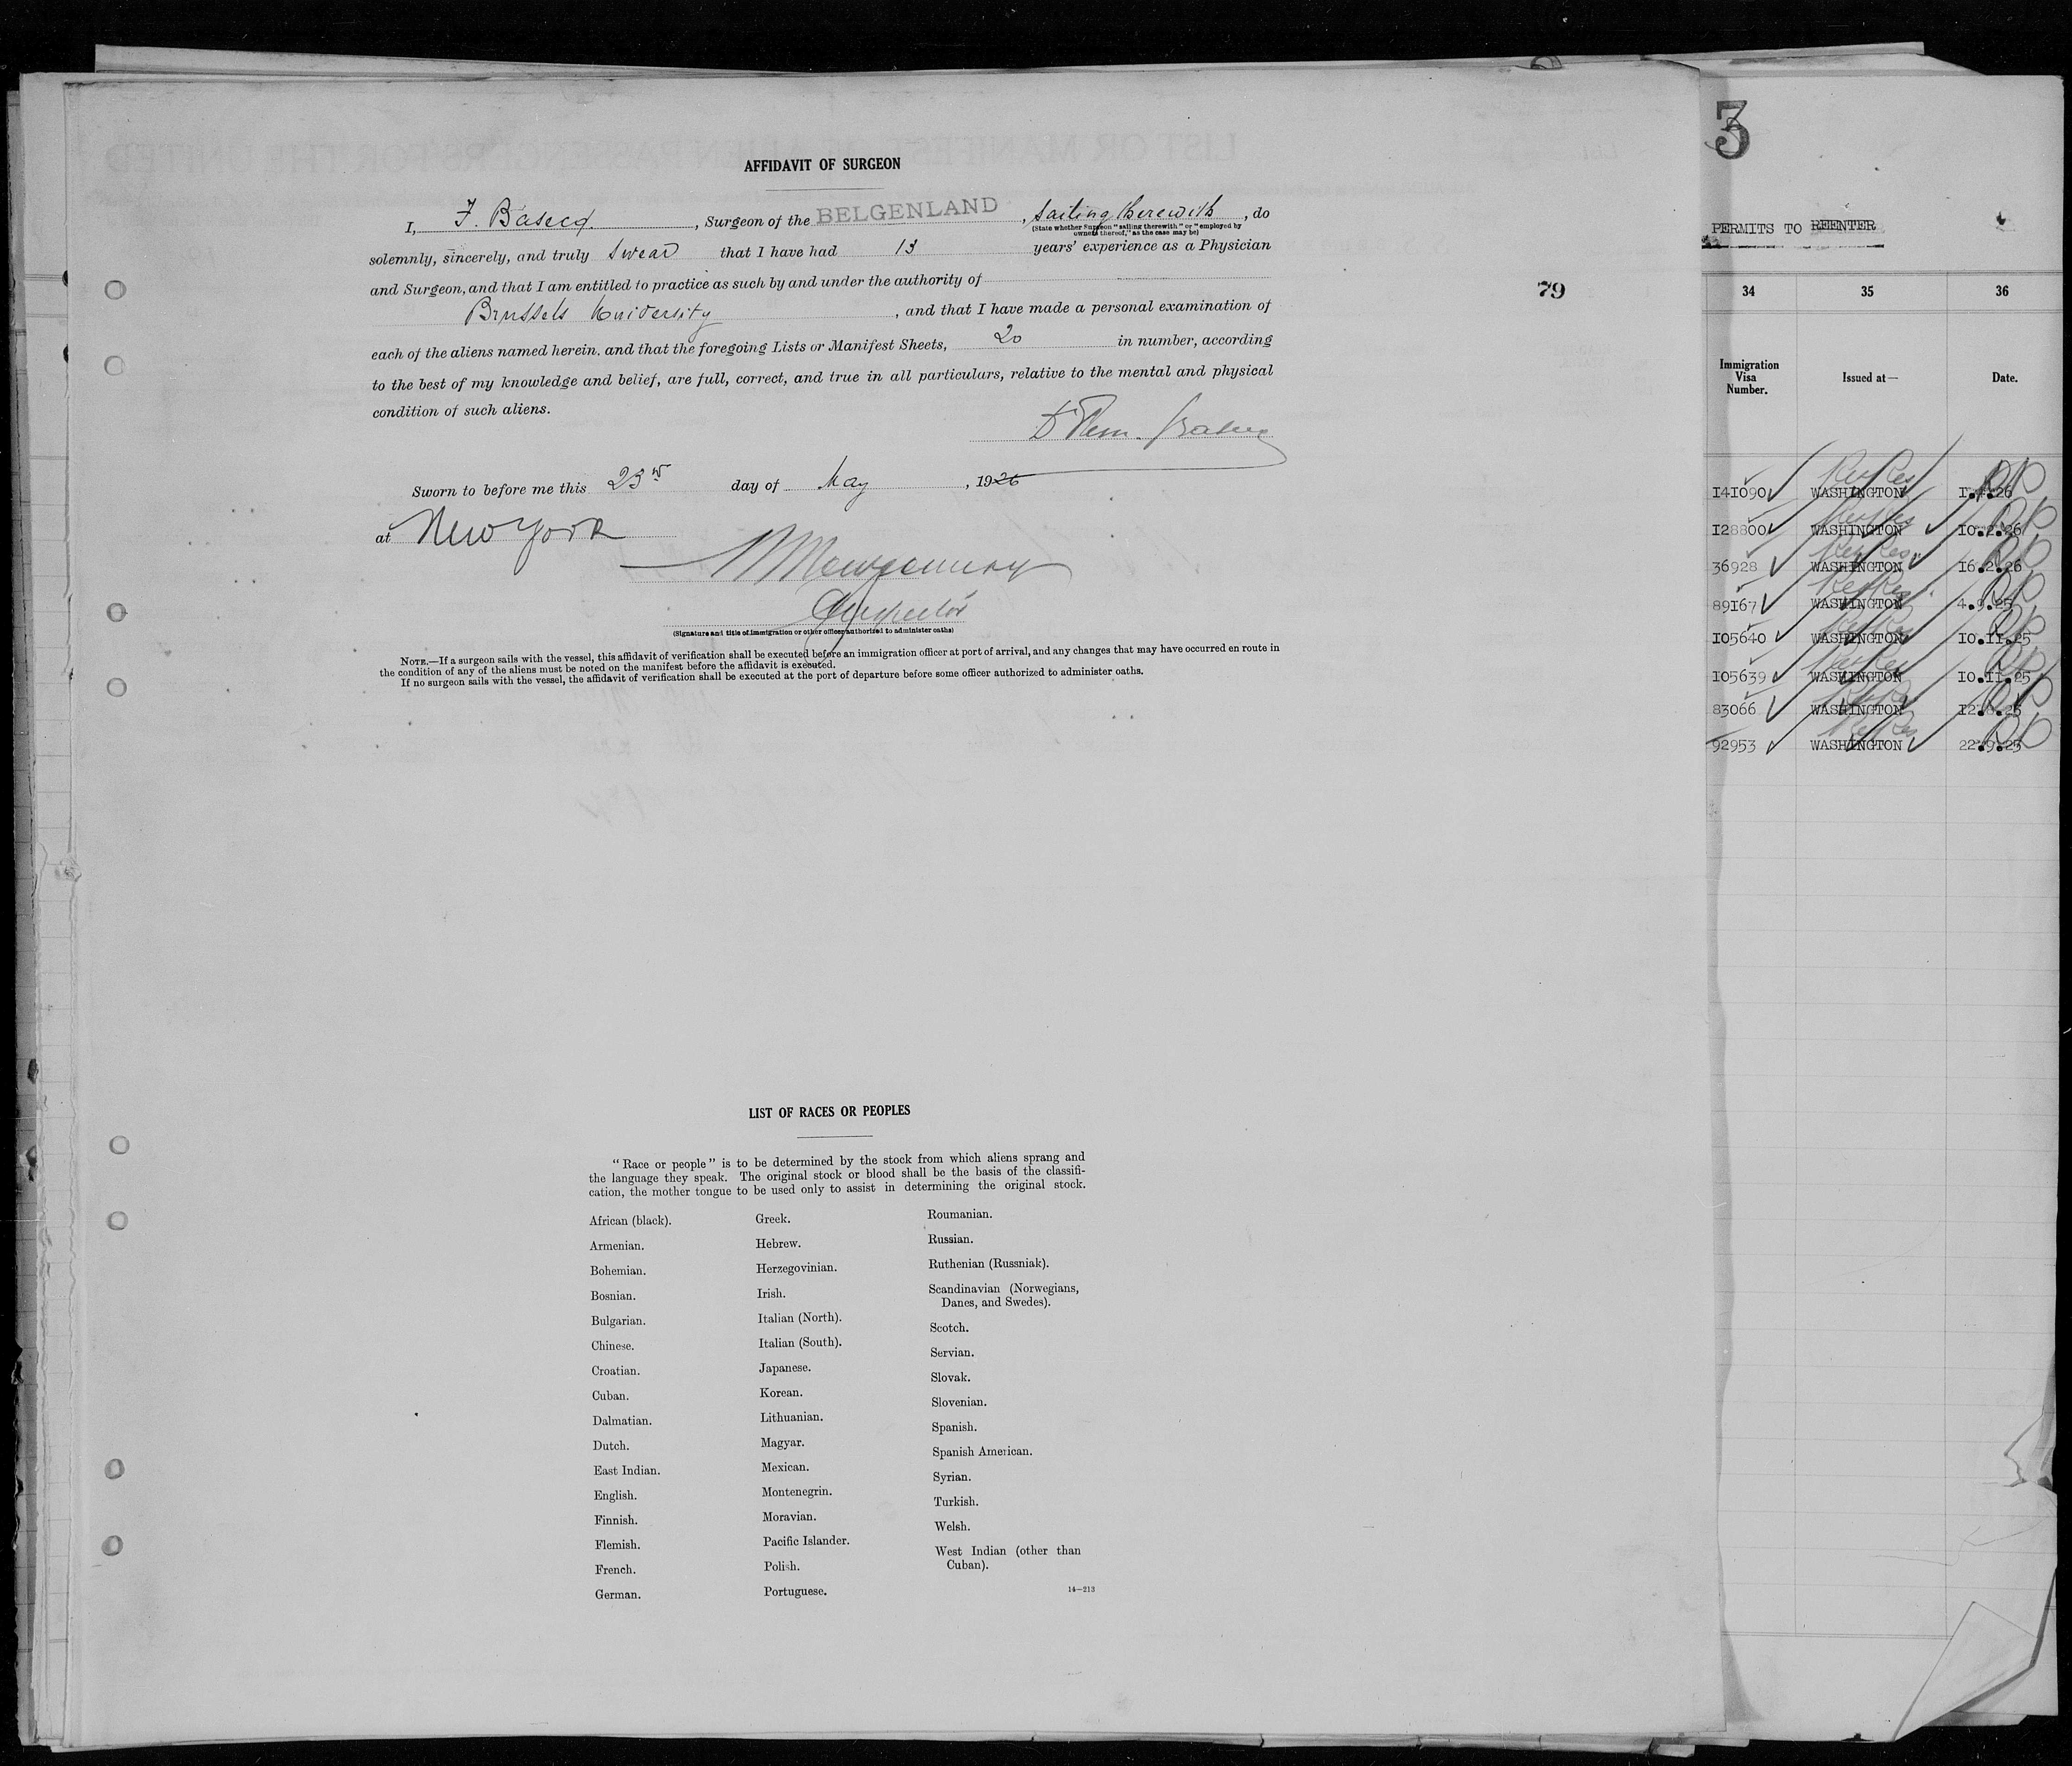 AFFIDAVIT OF SURGEON
I, F. Basecq, Surgeon of the BELGENLAND, sailing therewith, do
(State whether Surgeon "sailing therewith" or "employed by
owners thereof," as the case may be)
solemnly, sincerely, and truly swear that I have had 13 years' experience as a Physician
and Surgeon, and that I am entitled to practice as such by and under the authority of
Brussels University, and that I have made a personal examination of
each of the aliens named herein, and that the foregoing Lists or Manifest Sheets, 20 in number, according
to the best of my knowledge and belief, are full, correct, and true in all particulars, relative to the mental and physical
condition of such aliens.
Sworn to before me this 23rd day of May, 1926
at New York
Inspector
(Signature and title of immigration or other officer authorized to administer oaths)
NOTE.—If a surgeon sails with the vessel, this affidavit of verification shall be executed before an immigration officer at port of arrival, and any changes that may have occurred en route in
the condition of any of the aliens must be noted on the manifest before the affidavit is executed.
If no surgeon sails with the vessel, the affidavit of verification shall be executed at the port of departure before some officer authorized to administer oaths.
79
LIST OF RACES OR PEOPLES
"Race or people" is to be determined by the stock from which aliens sprang and
the language they speak. The original stock or blood shall be the basis of the classifi-
cation, the mother tongue to be used only to assist in determining the original stock.
African (black).
Armenian.
Bohemian.
Bosnian.
Bulgarian.
Chinese.
Croatian.
Cuban.
Dalmatian.
Dutch.
East Indian.
English.
Finnish.
Flemish.
French.
German.
Greek.
Hebrew.
Herzegovinian.
Irish.
Italian (North).
Italian (South).
Japanese.
Korean.
Lithuanian.
Magyar.
Mexican.
Montenegrin.
Moravian.
Pacific Islander.
Polish.
Portuguese.
Roumanian.
Russian.
Ruthenian (Russniak).
Scandinavian (Norwegians,
Danes, and Swedes).
Scotch.
Servian.
Slovak.
Slovenian.
Spanish.
Spanish American.
Syrian.
Turkish.
Welsh.
West Indian (other than
Cuban).
14—213
3
PERMITS TO REENTER
34 35 36
Immigration
Visa
Number.
Issued at—
Date.
141090 WASHINGTON
128800 WASHINGTON 10.2.26
36928 WASHINGTON 16.2.26
89167 WASHINGTON 4.9.25
105640 WASHINGTON 10.11.25
105639 WASHINGTON 10.11.25
83066 WASHINGTON
92953 WASHINGTON 22.9.25